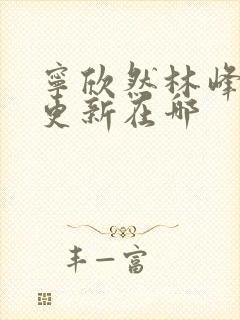 寧欣然林峰
更新在哪
丰一富